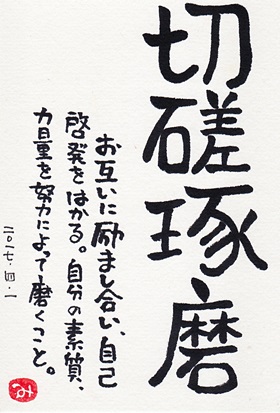 切磋琢磨
お互いに励まし合い、自己
啓発をはかる。自分の素質、
力量を努力によって磨くこと。
二〇一七・四・一